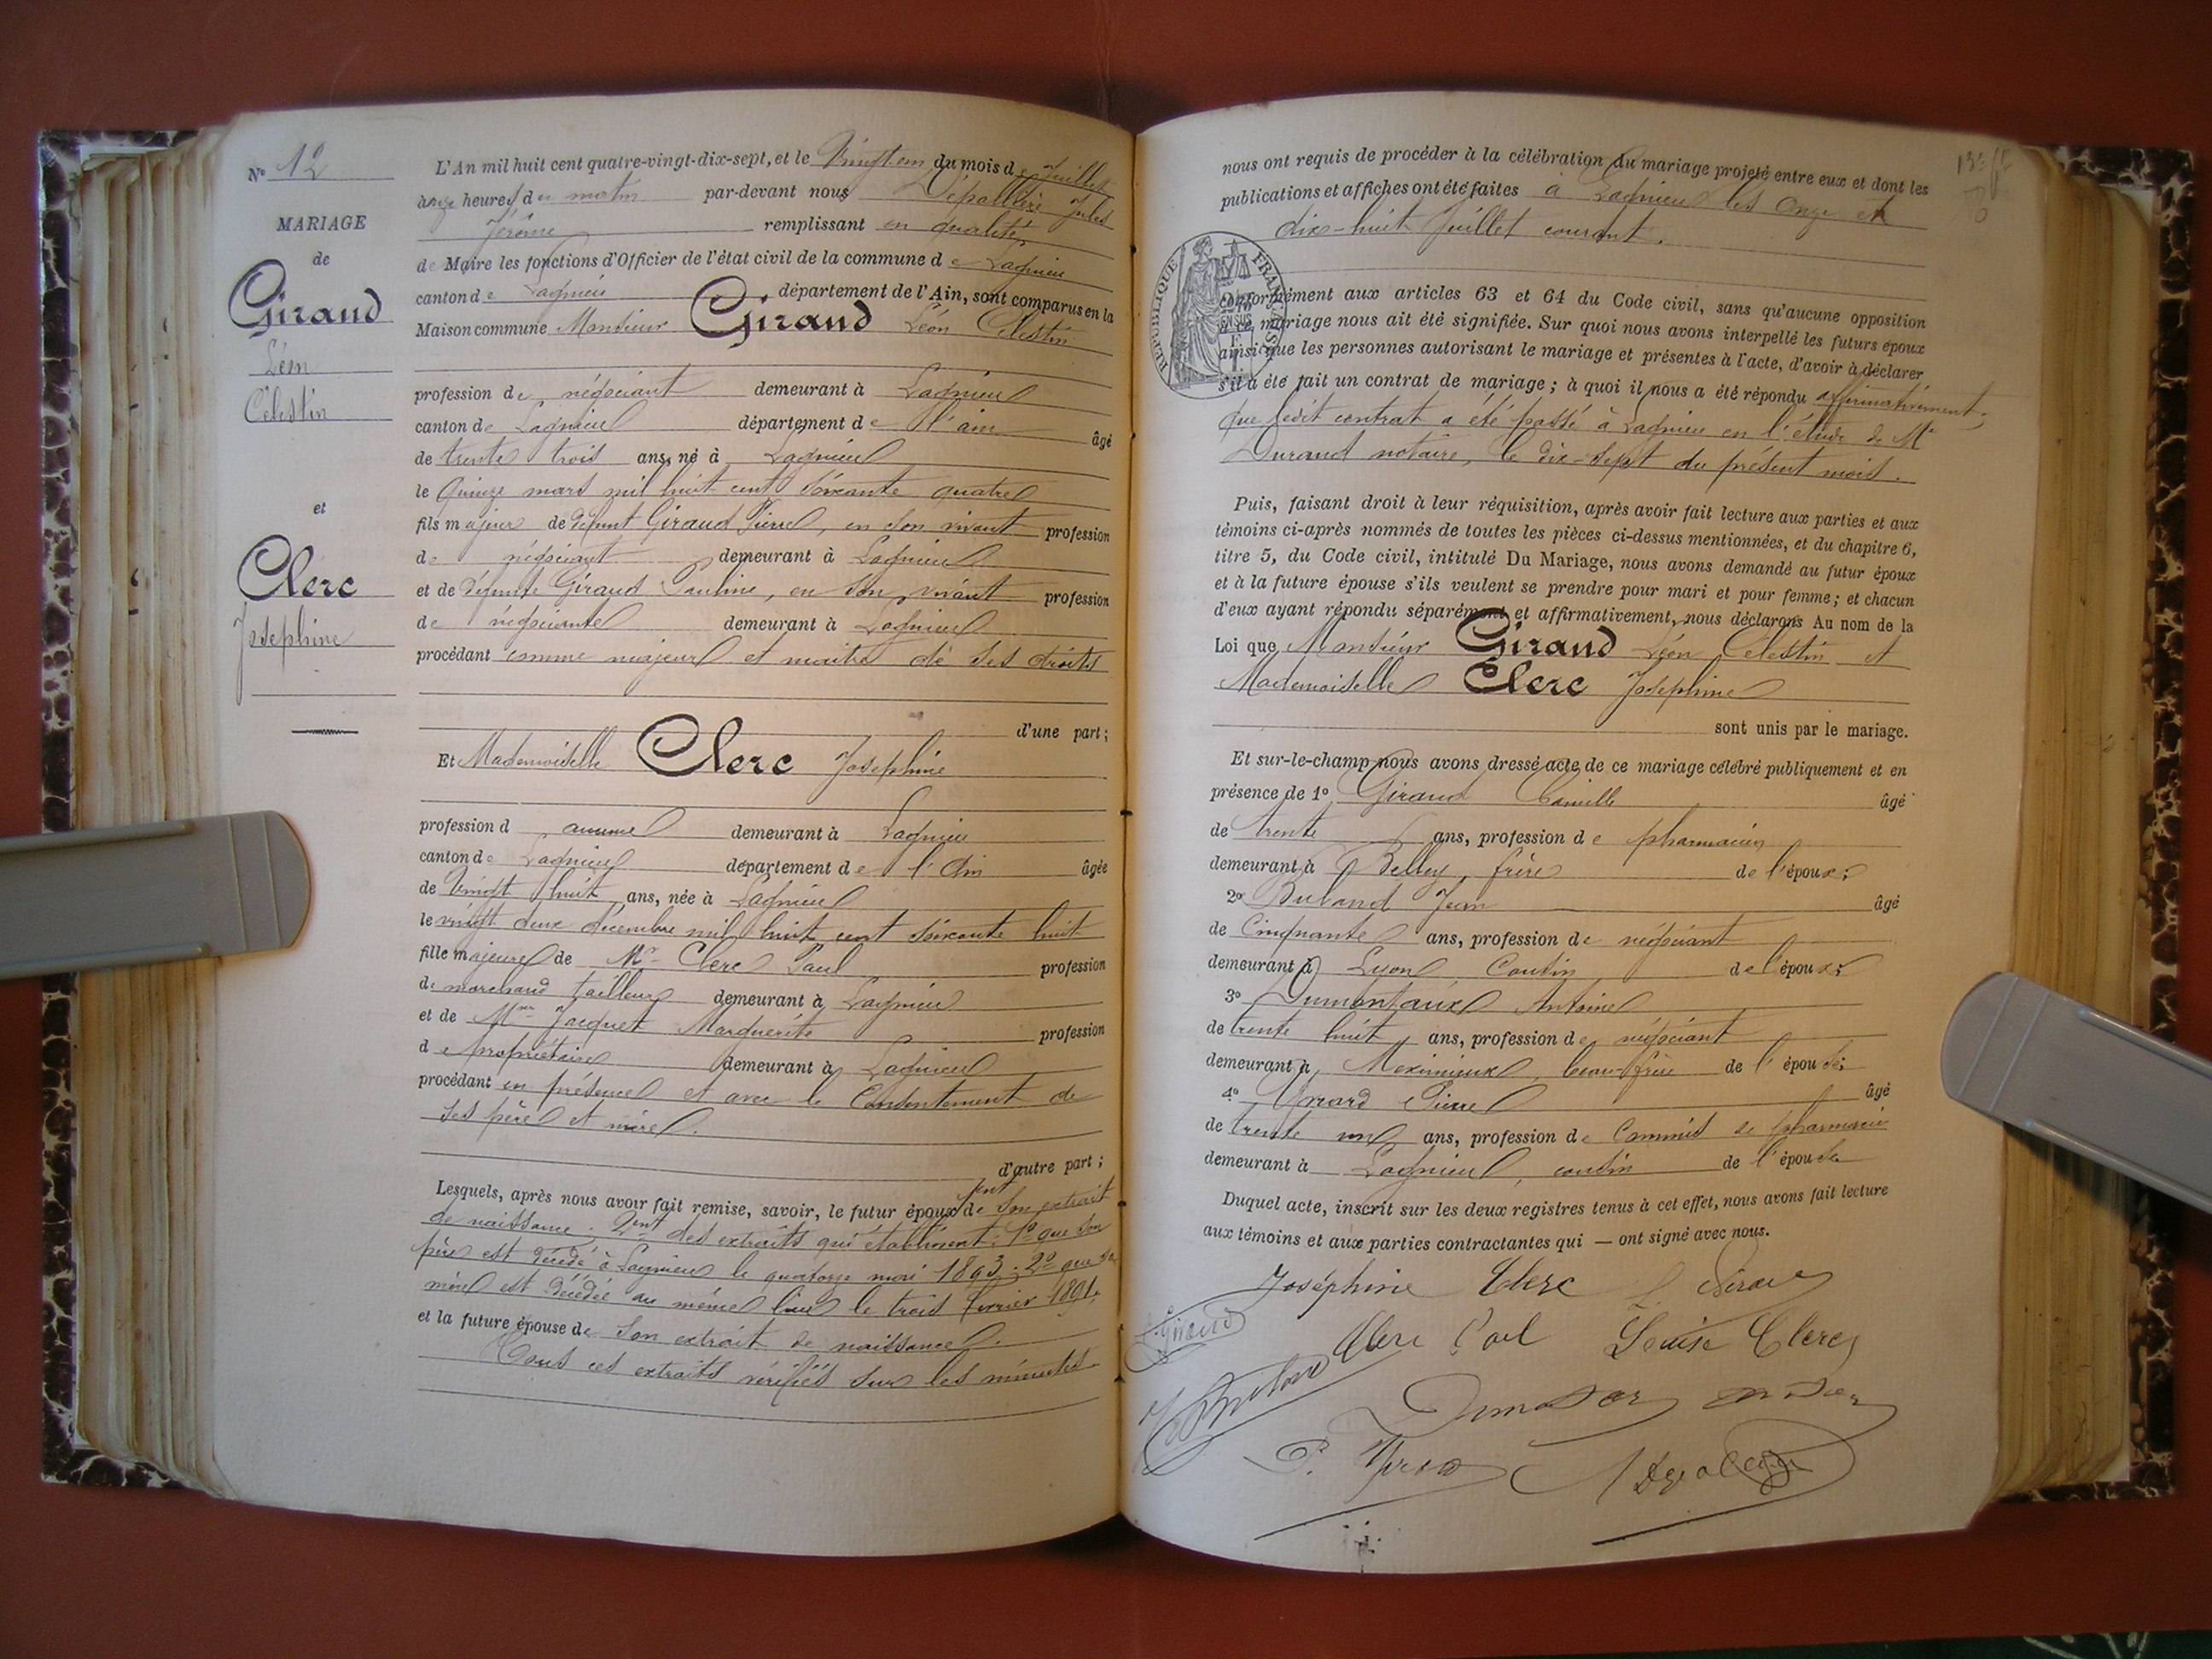 N° 12
MARIAGE
de
Giraud
Léon
Célestin
et
Clerc
Josephine
L'An mil huit cent quatre-vingt-dix-sept, et le Vingt un du mois de Juillet
à onze heures du matin par-devant nous Dépallière Jules
Jérôme remplissant en qualité
de Maire les fonctions d'Officier de l'état civil de la commune de Lagnieu
canton de Lagnieu département de l'Ain, sont comparus en la
Maison commune Monsieur Giraud Léon Célestin
profession de négociant demeurant à Lagnieu
canton de Lagnieu département de l'ain âgé
de trente trois ans, né à Lagnieu
le Quinze mars mil huit cent soixante quatre
fils majeur de défunt Giraud Pierre, en son vivant profession
de négociant demeurant à Lagnieu
et de défunte Giraud Pauline, en son vivant profession
de négociante demeurant à Lagnieu
procédant comme majeur et maître de ses droits
d'une part ;
Et Mademoiselle Clerc Joséphine
profession d aucune demeurant à Lagnieu
canton de Lagnieu département de l'Ain âgée
de Vingt huit ans, née à Lagnieu
le vingt deux décembre mil huit cent soixante huit
fille majeure de Mr Clerc Paul profession
de marchand tailleur demeurant à Lagnieu
et de Mme Jacquet Marguerite profession
de propriétaire demeurant à Lagnieu
procédant en présence et avec le Consentement de
ses père et mère.
d'autre part ;
Lesquels, après nous avoir fait remise, savoir, le futur époux de 1ent son extrait
de naissance ; 2ent des extraits qui établissent : 1° que son
père est décédé à Lagnieu le quatorze mai 1893 ; 2° que sa
mère est décédée au même lieu le trois février 1891.
et la future épouse de son extrait de naissance.
Tous ces extraits vérifiés sur les minutes
nous ont requis de procéder à la célébration du mariage projeté entre eux et dont les
publications et affiches ont été faites à Lagnieu les onze et
dix-huit Juillet courant.
RÉPUBLIQUE FRANÇAISE
conformément aux articles 63 et 64 du Code civil, sans qu'aucune opposition
à ce mariage nous ait été signifiée. Sur quoi nous avons interpellé les futurs époux
ainsi que les personnes autorisant le mariage et présentes à l'acte, d'avoir à déclarer
s'il a été fait un contrat de mariage ; à quoi il nous a été répondu affirmativement ;
que ledit contrat a été passé à Lagnieu en l'étude de Me
Durand notaire, le dix-sept du présent mois.
Puis, faisant droit à leur réquisition, après avoir fait lecture aux parties et aux
témoins ci-après nommés de toutes les pièces ci-dessus mentionnées, et du chapitre 6,
titre 5, du Code civil, intitulé Du Mariage, nous avons demandé au futur époux
et à la future épouse s'ils veulent se prendre pour mari et pour femme ; et chacun
d'eux ayant répondu séparément et affirmativement, nous déclarons Au nom de la
Loi que Monsieur Giraud Léon Célestin et
Mademoiselle Clerc Josephine
sont unis par le mariage.
Et sur-le-champ nous avons dressé acte de ce mariage célébré publiquement et en
présence de 1° Giraud Camille âgé
de trente ans, profession de pharmacien
demeurant à Belley, frère de l'époux ;
2° Buland Jean âgé
de Cinquante ans, profession de négociant
demeurant à Lyon Cousin de l'époux ;
3° Dumontaux Antoine
de trente huit ans, profession de négociant
demeurant à Meximieux, beau-frère de l'épouse ;
4° Yvrard Pierre âgé
de trente un ans, profession de Commis de pharmacie
demeurant à Lagnieu, cousin de l'épouse
Duquel acte, inscrit sur les deux registres tenus à cet effet, nous avons fait lecture
aux témoins et aux parties contractantes qui — ont signé avec nous.
Joséphine Clerc L Giraud
C. Giraud
Clerc Paul Louise Clerc